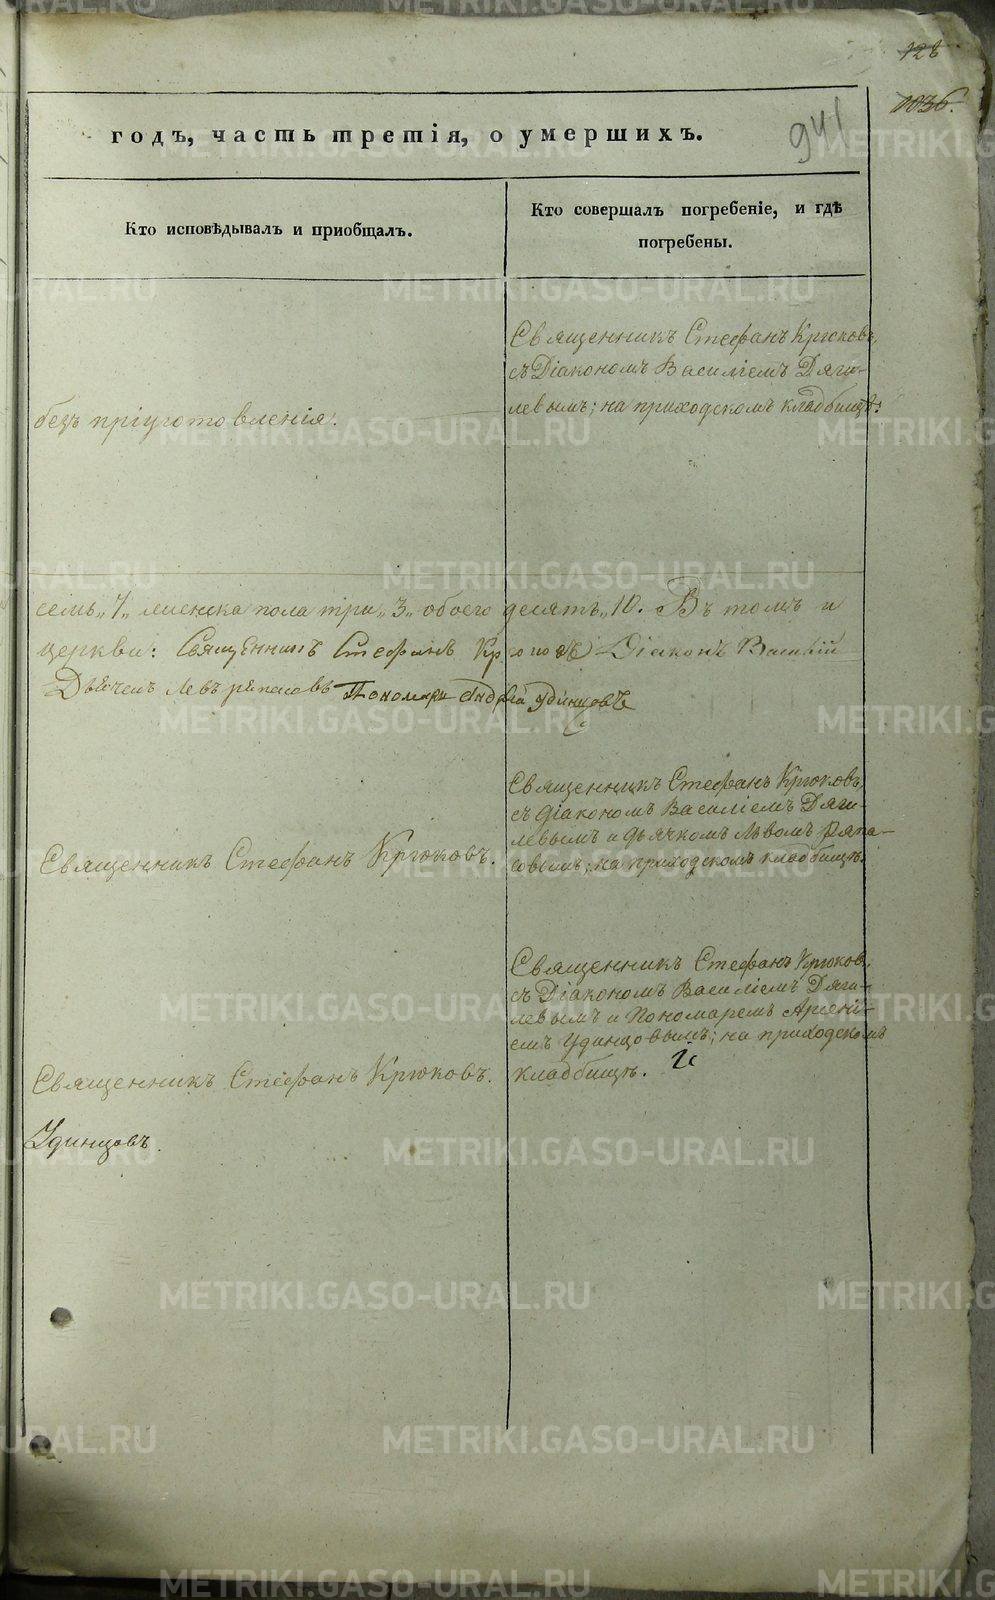 128
1036.
941
годъ, часть третія, о умершихъ.
Кто исповѣдывалъ и приобщалъ.
Кто совершалъ погребеніе, и гдѣ
погребены.
Священникъ Стефанъ Крюковъ,
съ Діакономъ Василіемъ Дяги-
левымъ; на приходскомъ кладбищѣ.
безъ пріуготовленія.
семь „7„ женска пола три „3„ обоего десять „10. Въ томъ и
церкви: Священникъ Стефанъ Крюковъ Діаконъ Василій
Пономарь Удинцовъ
Священникъ Стефанъ Крюковъ,
съ діакономъ Василіемъ Дяги-
левымъ и дьячкомъ Львомъ Ряпа-
совымъ; на приходскомъ кладбищѣ.
Священникъ Стефанъ Крюковъ.
Священникъ Стефанъ Крюковъ,
съ Діакономъ Василіемъ Дяги-
левымъ и Пономаремъ Арсені-
емъ Удинцовымъ; на приходскомъ
кладбищѣ. И
Священникъ Стефанъ Крюковъ.
Удинцовъ.
METRIKI.GASO-URAL.RU